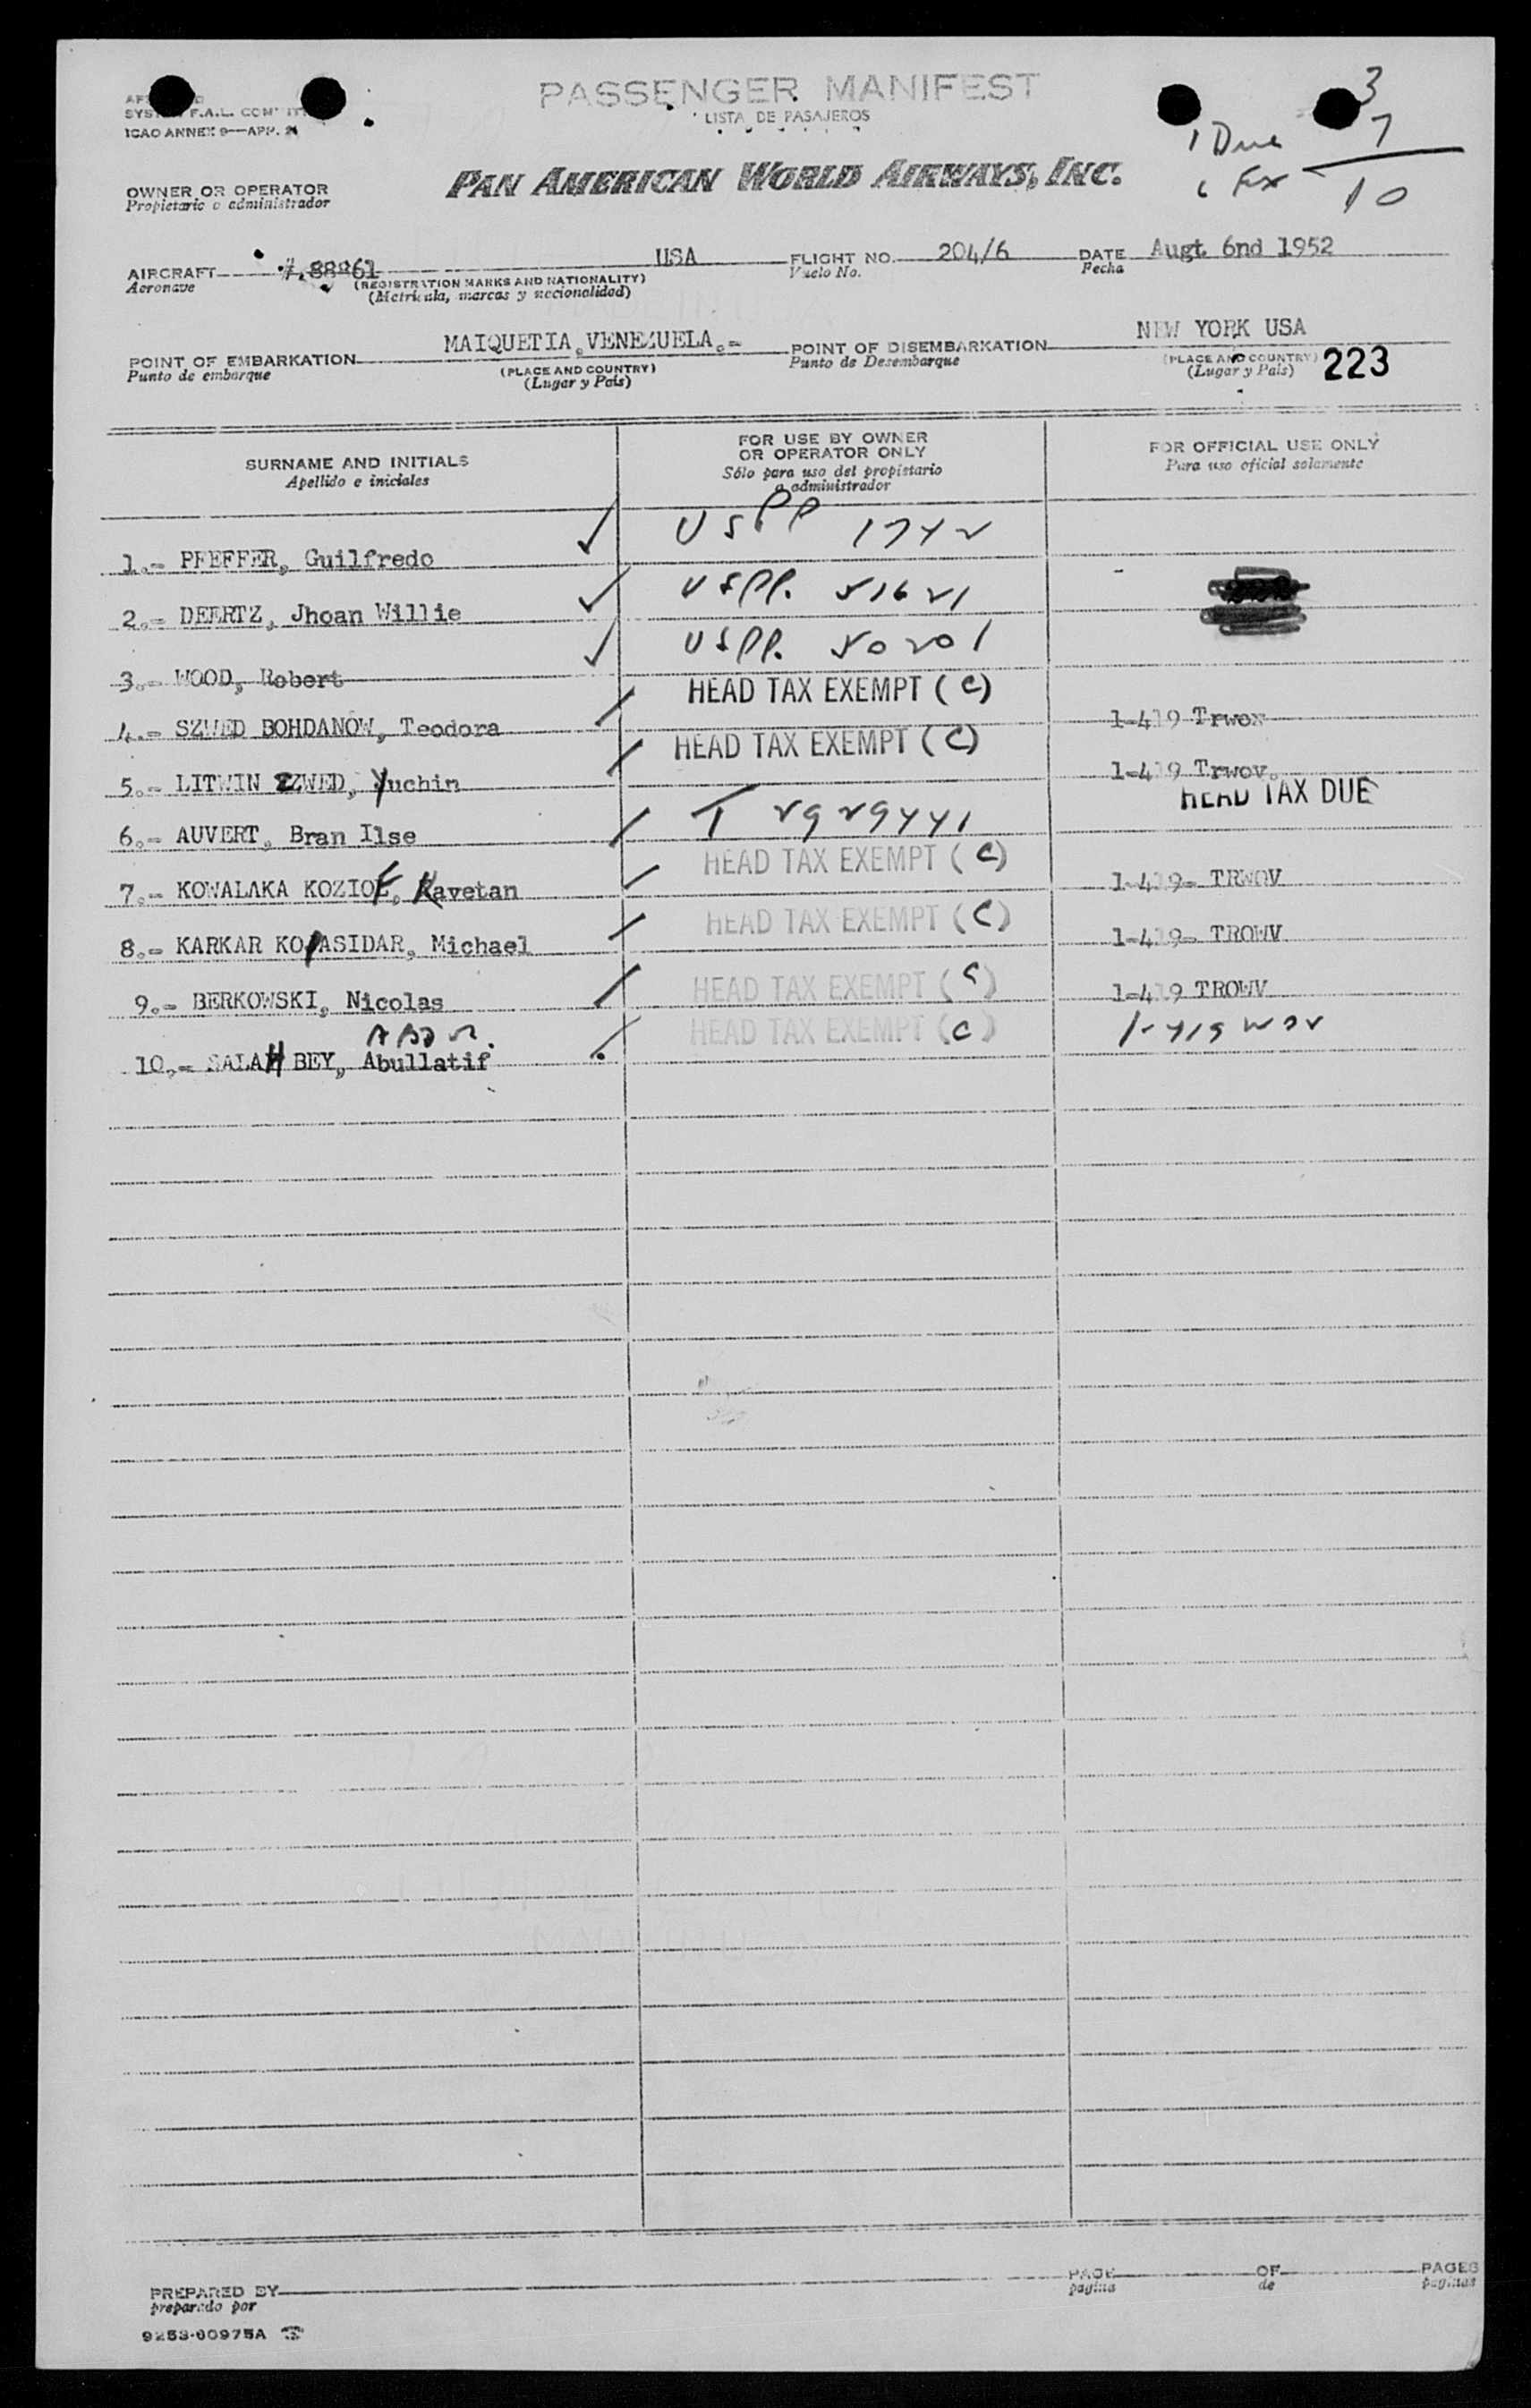 PASSENGER MANIFEST
LISTA DE PASAJEROS
F.A.L.
ICAO ANNEX 9—APP. 2
3
7
1 Due
6 Ex
10
PAN AMERICAN WORLD AIRWAYS, INC.
OWNER OR OPERATOR
Propietario o administrador
AIRCRAFT USA FLIGHT NO. 204/6 DATE Augt 6nd 1952
Aeronave (REGISTRATION MARKS AND NATIONALITY) Vuelo No. Fecha
(Matrícula, marcas y nacionalidad)
POINT OF EMBARKATION MAIQUETIA, VENEZUELA.- POINT OF DISEMBARKATION NEW YORK USA
Punto de embarque (PLACE AND COUNTRY) Punto de Desembarque (PLACE AND COUNTRY) 223
(Lugar y País) (Lugar y País)
SURNAME AND INITIALS FOR USE BY OWNER OR OPERATOR ONLY FOR OFFICIAL USE ONLY
Apellido e iniciales Sólo para uso del propietario o administrador Para uso oficial solamente
1.- PFEFFER, Guilfredo ✓ USPP 1742
2.- DEERTZ, Jhoan Willie ✓ USPP. 51621
3.- WOOD, Robert ✓ USPP. 50201
4.- SZWED BOHDANOW, Teodora / HEAD TAX EXEMPT (C) 1-419 Trwov
5.- LITWIN SZWED, Yuchin / HEAD TAX EXEMPT (C) 1-419 Trwov.
HEAD TAX DUE
6.- AUVERT, Bran Ilse / T 2929441
7.- KOWALAKA KOZIOE, Kavetan / HEAD TAX EXEMPT (C) 1-419- TRWOV
8.- KARKAR KOPASIDAR, Michael / HEAD TAX EXEMPT (C) 1-419- TROWV
9.- BERKOWSKI, Nicolas / HEAD TAX EXEMPT (C) 1-419 TROWV
10.- SALAH BEY, Abullatif / HEAD TAX EXEMPT (C) 1-419 WOV
PREPARED BY PAGE OF PAGES
preparado por pagina de paginas
9253-60975A